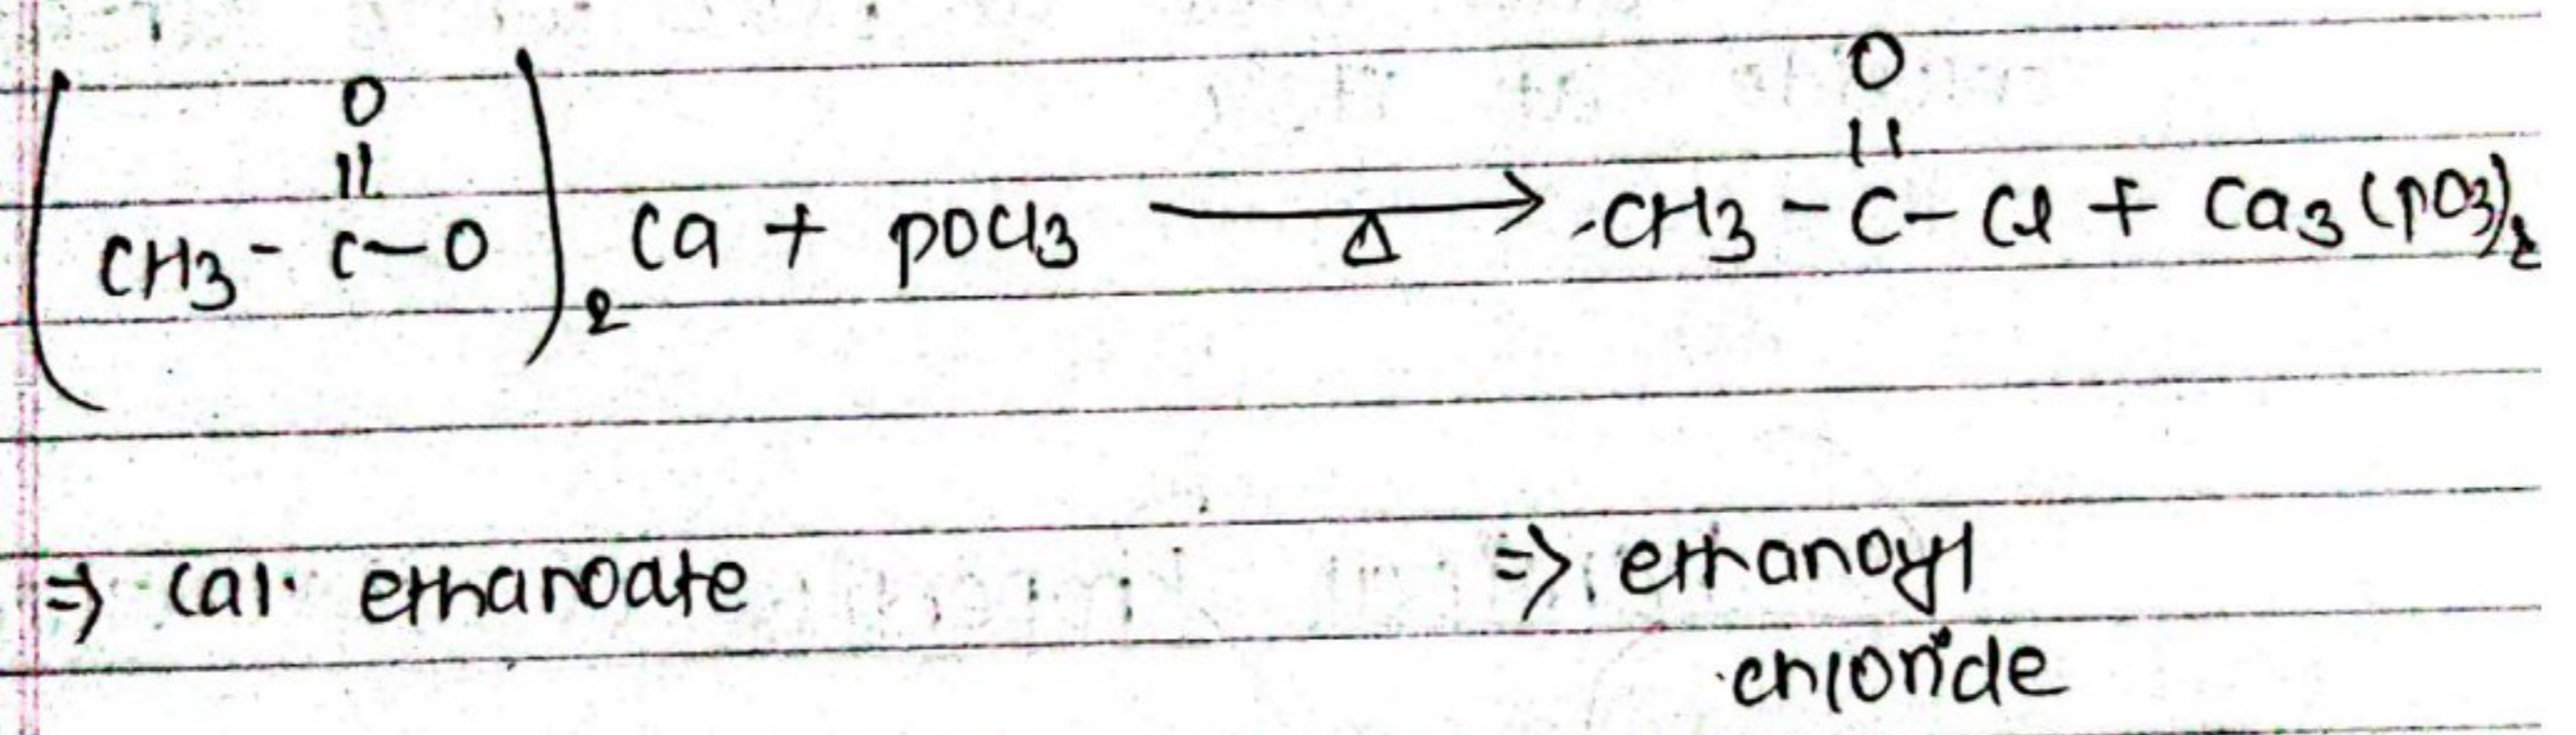 O O
|| ||
(CH3 - C - O)2 Ca + POCl3 ⟶ CH3 - C - Cl + Ca3(PO3)2
Δ
⇒ Cal. ethanoate ⇒ ethanoyl
chloride